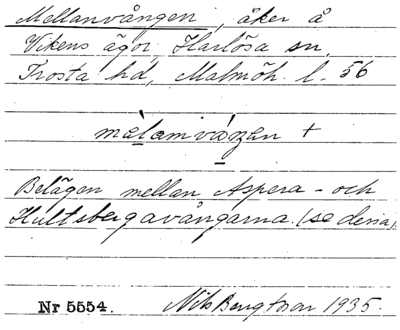 Mellanvången, åker å
Vikens ägor, Harlösa sn,
Frosta hd, Malmöh. l. 56
mèlamváŋen +
Belägen mellan Aspera- och
Hultsbergavångarna. (se dessa).
Nr 5554. Nils Bengtsson 1935.